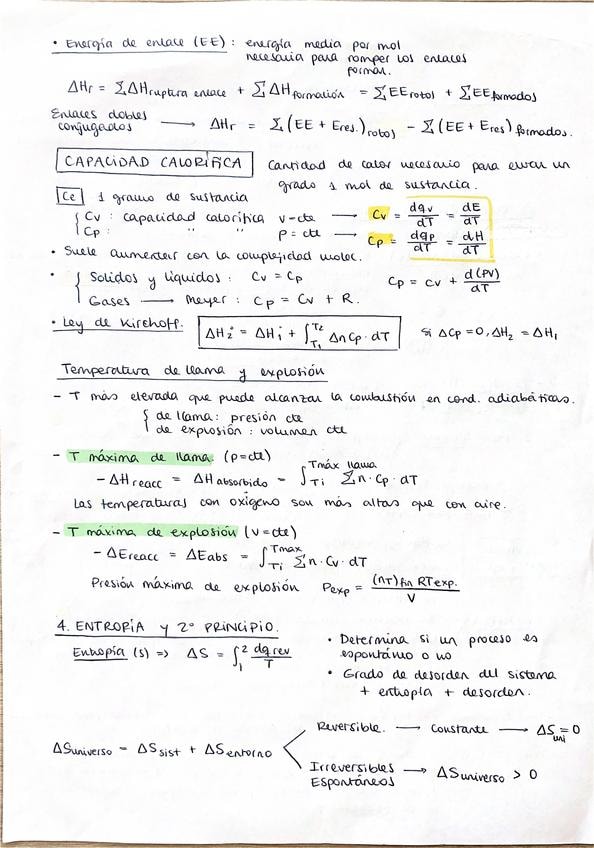 • Energía de enlace (EE) : energía media por mol
necesaria para romper los enlaces
forman.
ΔHr = ∑ΔHruptura enlace + ∑ΔHformación = ∑EErotos + ∑EEformados
Enlaces dobles
conjugados ⟶ ΔHr = ∑(EE + Eres.)rotos - ∑(EE + Eres)formados.
CAPACIDAD CALORÍFICA Cantidad de calor necesario para elevar un
grado 1 mol de sustancia.
Ce 1 gramo de sustancia
{ Cv : capacidad calorífica v=cte ⟶ Cv = dqv/dT = dE/dT
Cp : " " p = cte ⟶ Cp = dqp/dT = dH/dT
• Suele aumentar con la complejidad molec.
• { Solidos y líquidos : Cv = Cp Cp = Cv + d(PV)/dT
Gases ⟶ Meyer : Cp = Cv + R.
• Ley de Kirchoff. ΔH2° = ΔH1° + ∫T1 T2 ΔnCp · dT si ΔCp = 0, ΔH2 = ΔH1
Temperatura de llama y explosión
- T más elevada que puede alcanzar la combustión en cond. adiabáticas.
{ de llama: presión cte
de explosión : volumen cte
- T máxima de llama (p=cte)
- ΔHreacc = ΔHabsorbido = ∫Ti Tmáx llama ∑n · Cp · dT
Las temperaturas con oxígeno son más altas que con aire.
- T máxima de explosión (v=cte)
- ΔEreacc = ΔEabs = ∫Ti Tmax ∑n · Cv · dT
Presión máxima de explosión Pexp = (nT)fin RTexp. / V
4. ENTROPÍA y 2º PRINCIPIO.
Entropía (S) => ΔS = ∫1 2 dqrev/T
• Determina si un proceso es
espontáneo o no
• Grado de desorden del sistema
+ entropía + desorden.
ΔSuniverso = ΔSsist + ΔSentorno
Reversible. ⟶ Constante ⟶ ΔSuni = 0
Irreversibles
Espontáneos ⟶ ΔSuniverso > 0